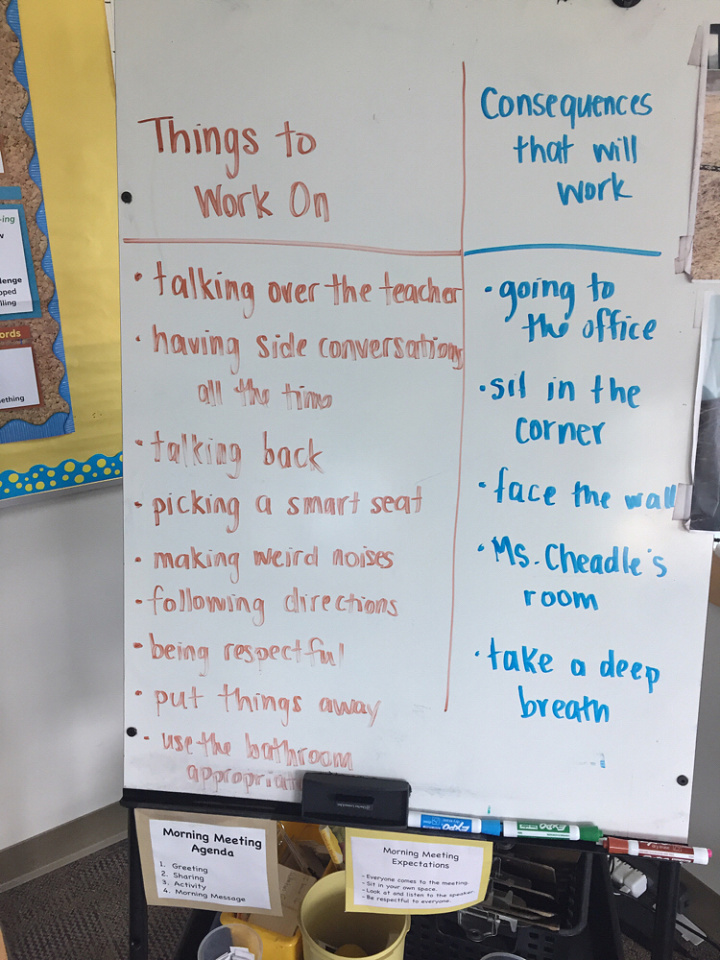 Things to
Work On
• talking over the teacher
• having side conversations
all the time
• talking back
• picking a smart seat
• making weird noises
• following directions
• being respectful
• put things away
• use the bathroom
Consequences
that will
work
• going to
the office
• sit in the
corner
• face the wall
• Ms. Cheadle's
room
• take a deep
breath
-ing
ords
Morning Meeting
Agenda
1. Greeting
2. Sharing
3. Activity
4. Morning Message
Morning Meeting
Expectations
- Everyone comes to the meeting.
- Sit in your own space.
- Look at and listen to the speaker.
- Be respectful to everyone.
EXPO
EXPO
EXPO